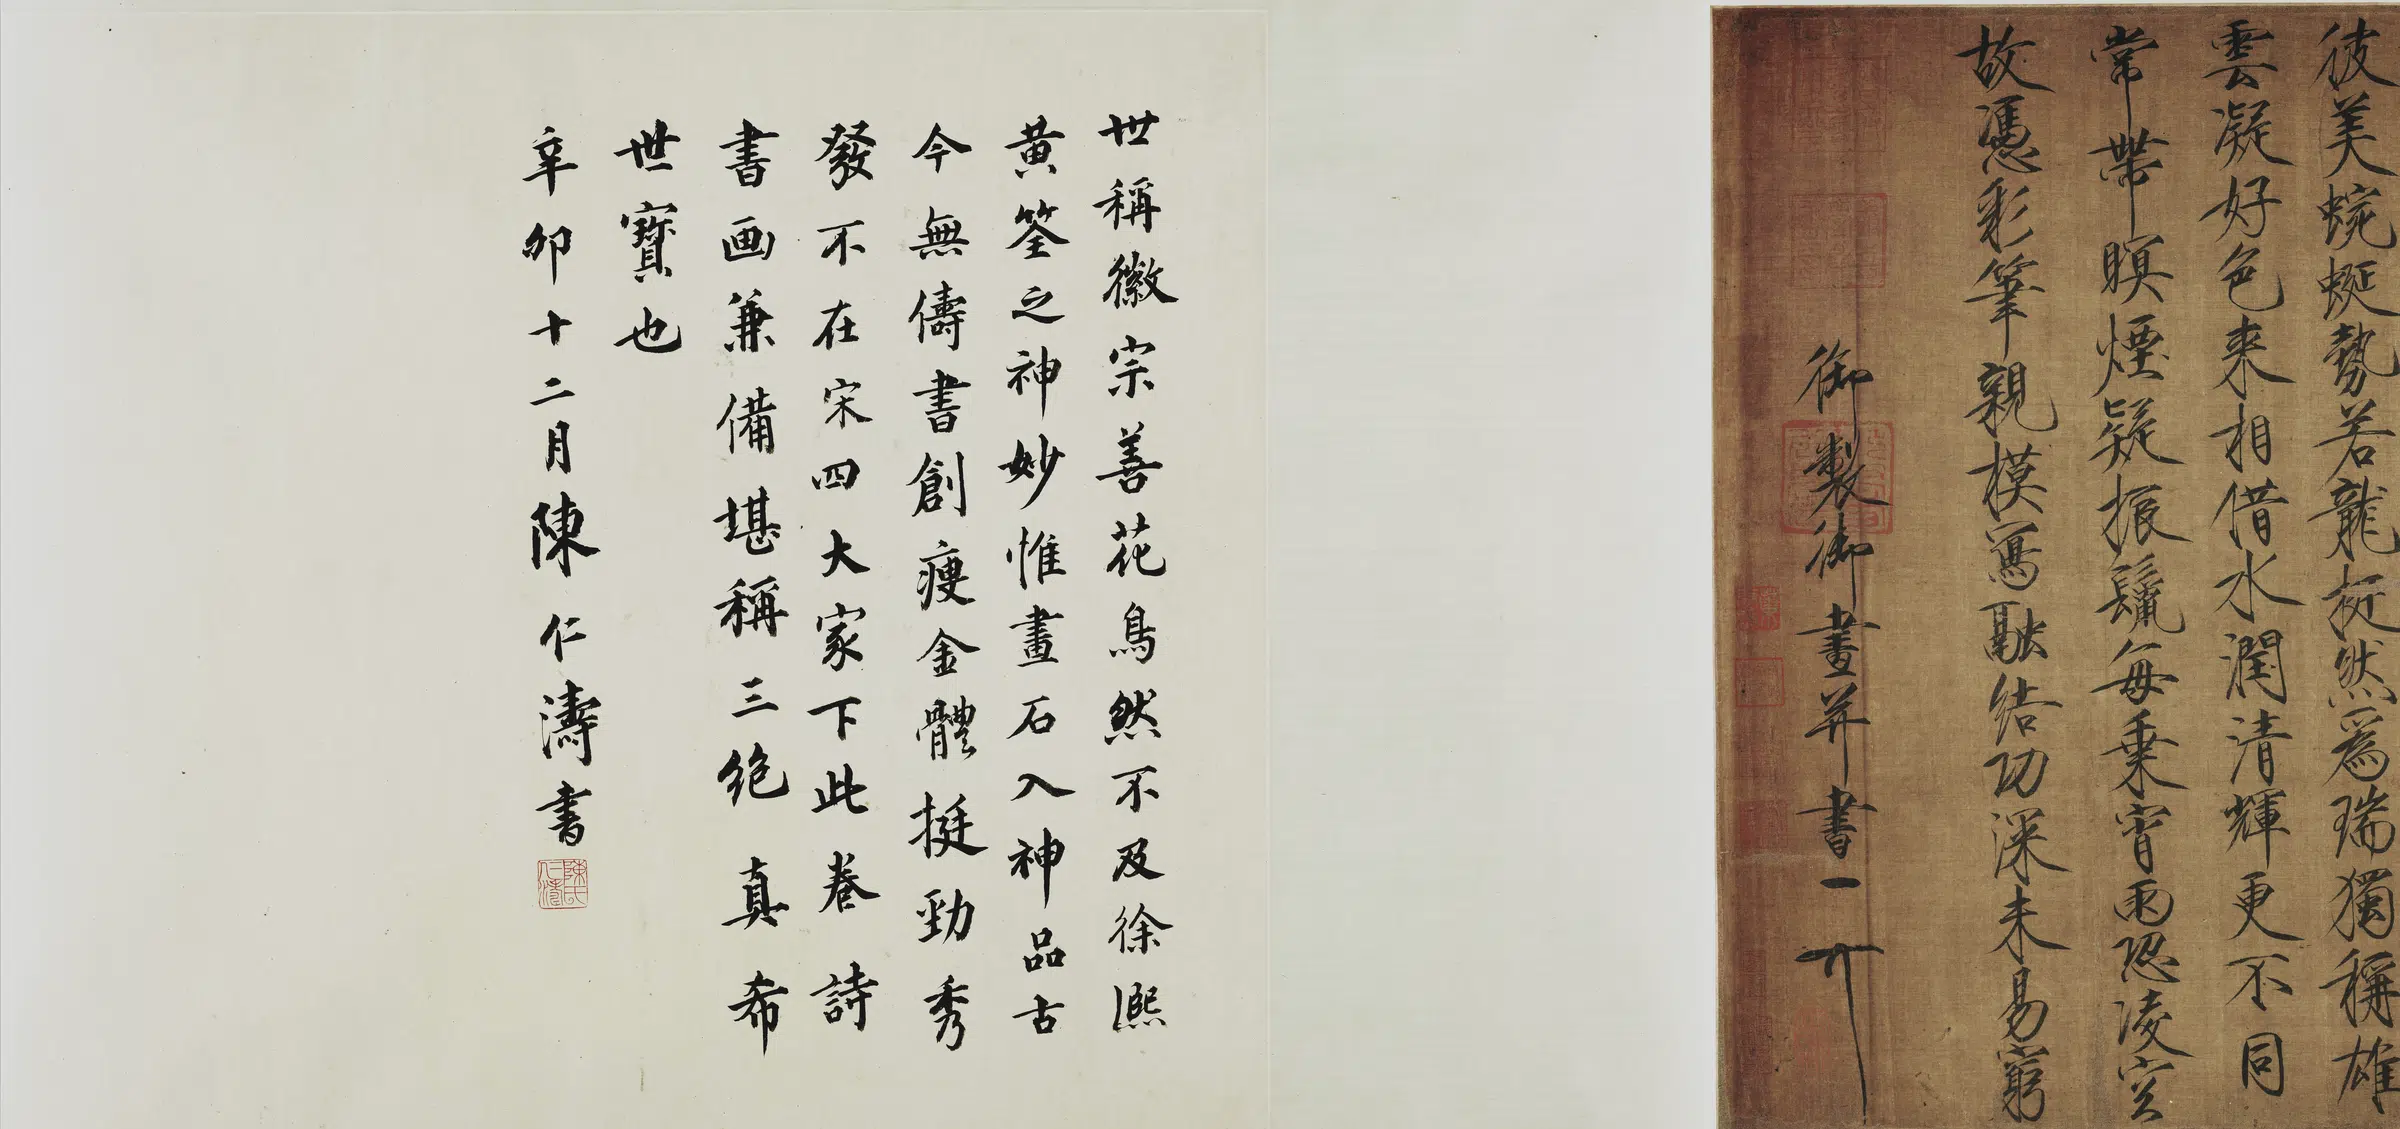 彼美蜿蜒勢若龍挺然為瑞獨稱雄
雲凝好色来相借水潤清輝更不同
常帶瞑煙疑振鬣每乗宵雨恐凌空
故憑彩筆親模寫融結功深未易窮
御製御畫并書
世稱徽宗善花鳥然不及徐熙
黄筌之神妙惟畫石入神品古
今無儔書創瘦金體挺勁秀
發不在宋四大家下此卷詩
書画兼備堪稱三絶真希
世寶也
辛卯十二月陳仁濤書
陳氏仁濤